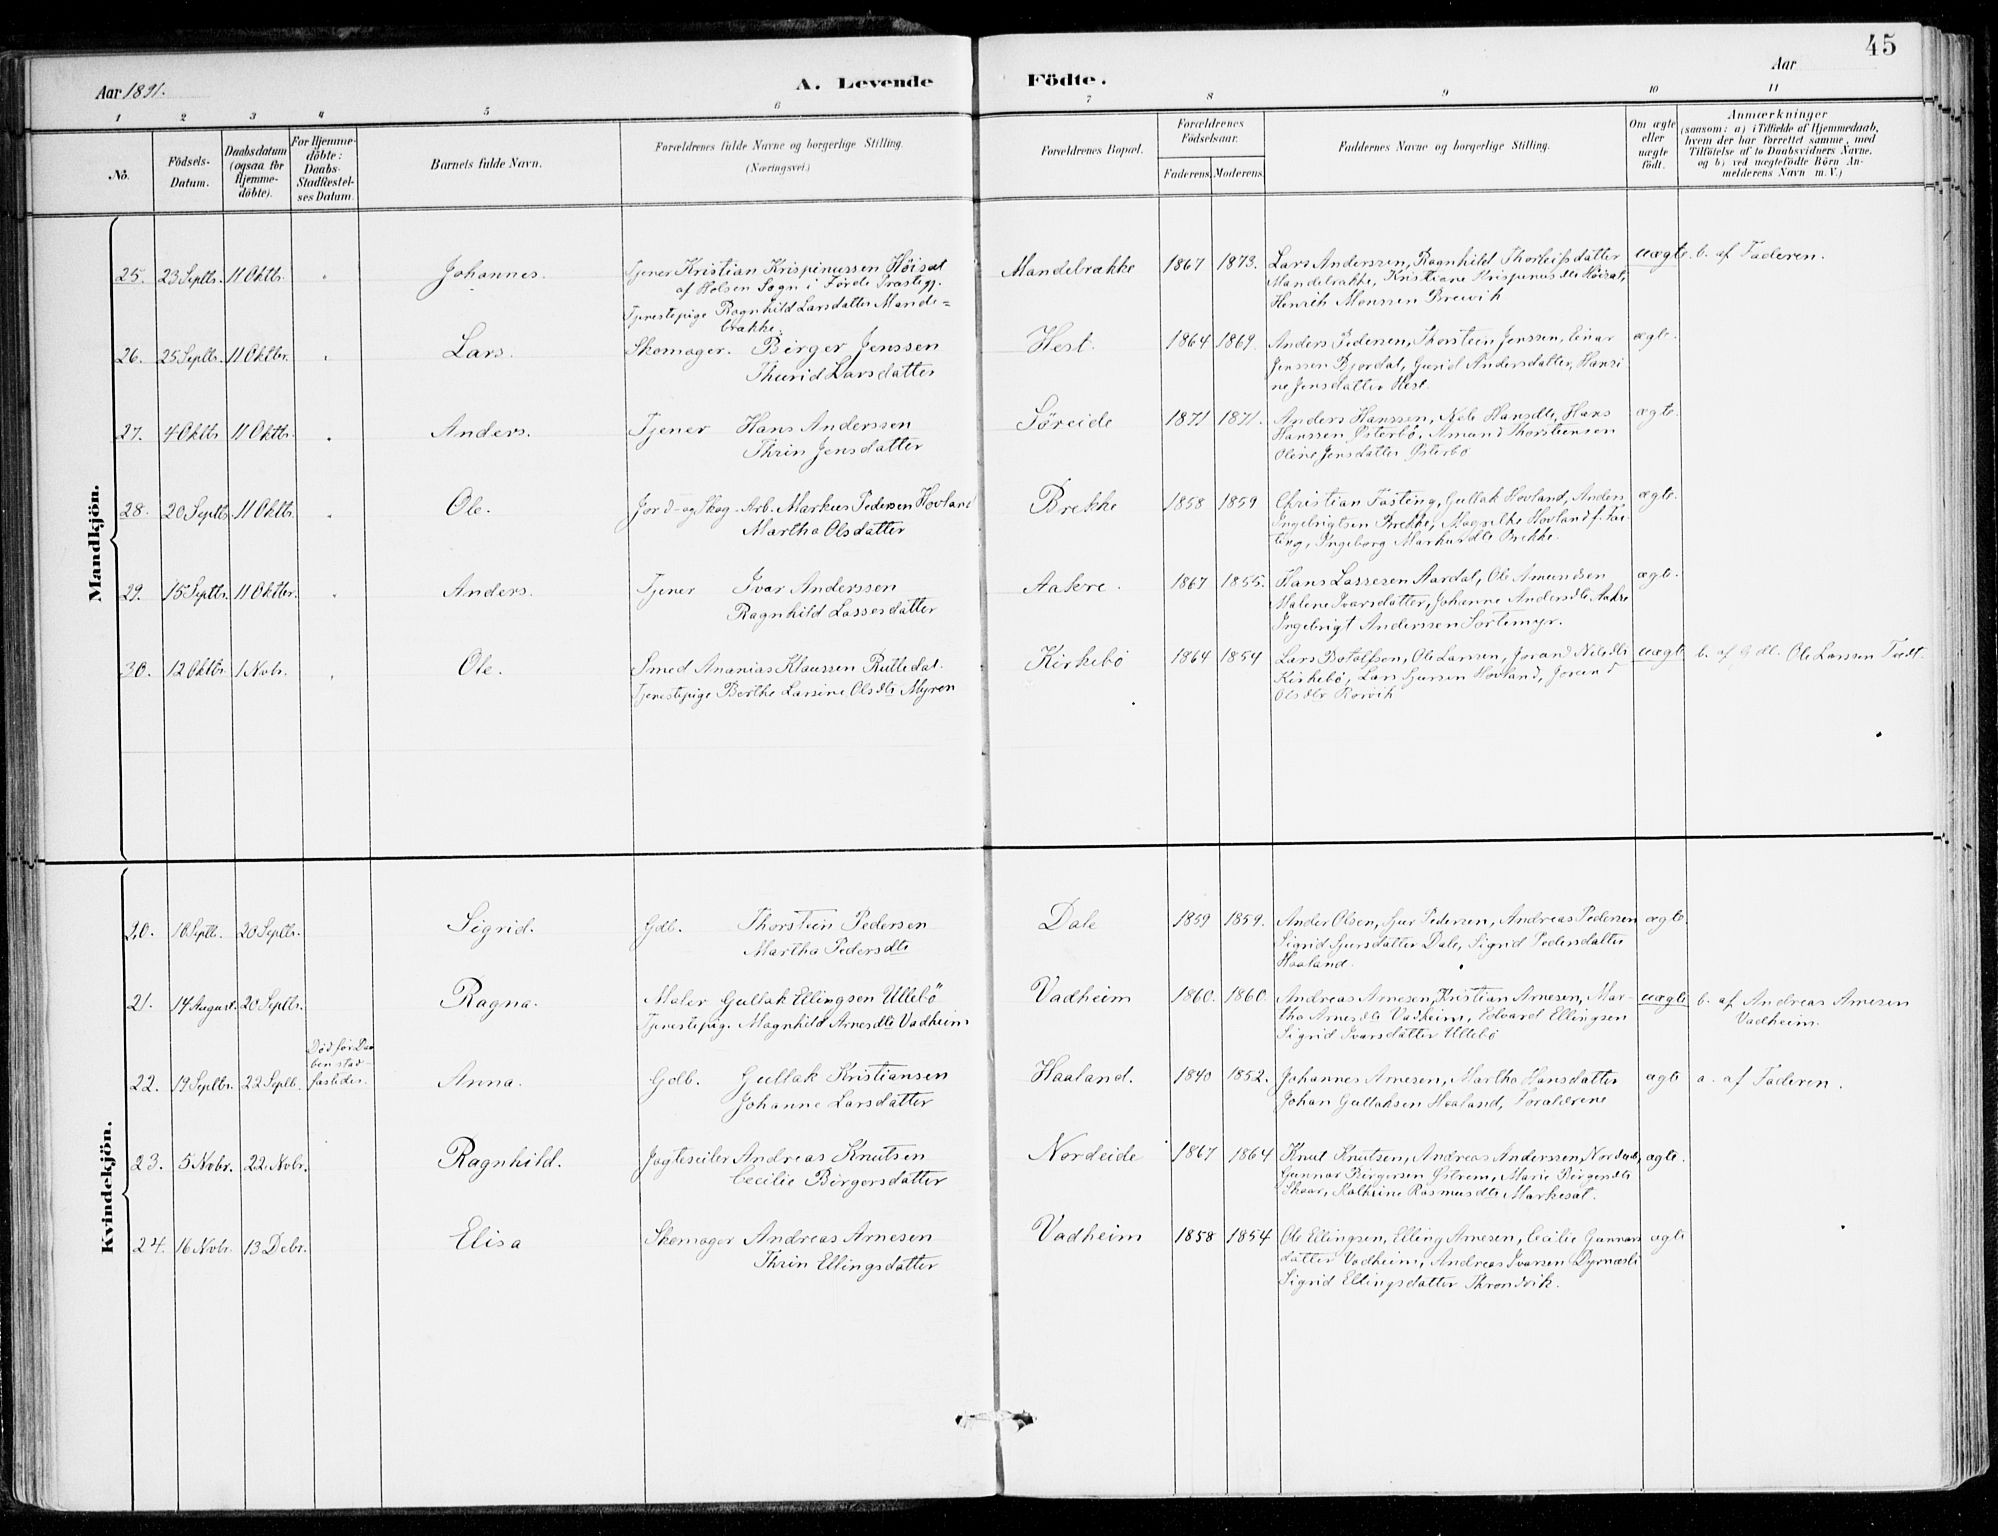 45
Aar 1891.
A. Levende Fødte.
Aar
1 2 3 4 5 6 7 8 9 10 11
No.
Födsels-
Datum.
Daabsdatum
(ogsaa for
Hjemme-
döbte).
For Hjemme-
döbte:
Daabs-
Stadfæstel-
ses Datum.
Barnets fulde Navn.
Forældrenes fulde Navne og borgerlige Stilling.
(Næringsvei.)
Forældrenes Bopæl.
Forældrenes
Födselsaar.
Faderens. Moderens.
Faddernes Navne og borgerlige Stilling.
Om ægte
eller
uægte
födt.
Anmærkninger
(saasom: a) i Tilfælde af Hjemmedaab,
hvem der har forrettet samme, med
Tilföielse af to Daabsvidners Navne,
og b) ved uægtefödte Börn An-
melderens Navn m. V.)
Mandkjön.
25. 23 Septbr. 11 Oktbr. Johannes.
Tjener Kristian Krispinussen Höisæt
af Holsen Sogn i Förde Præstegj.
Tjenestepige Ragnhild Larsdatter Mande-
brække.
Mandebrække 1867 1873.
Lars Anderssen, Ragnhild Thorleifsdatter
Mandebrække, Kristiane Krispinusdtr Höisæt,
Henrik Monssen Brewik
uægte b. af Faderen.
26. 25 Septbr. 11 Oktbr. Lars.
Skomager. Birger Jenssen
Thurid Larsdatter
Hest. 1864 1869.
Anders Pedersen, Thorstein Jenssen, Einar
Jenssen Bjordal, Gurid Andersdatter, Hansi-
ne Jensdatter Hest.
ægte.
27. 4 Oktbr 11 Oktbr. Anders.
Tjener Hans Anderssen
Thrin Jensdatter
Söreide 1871 1871.
Anders Hanssen, Nele Hansdtr, Hans
Hanssen Østerbö, Amund Thorsteinsen
Oline Jensdatter Østerbö
ægte.
28. 20 Septbr. 11 Oktbr. Ole.
Jord- og Skog-Arb. Markus Pedersen Hovland
Martha Olsdatter
Brekke 1858 1859
Christian Fasting, Gullak Hovland, Anders
Ingebrigtsen Brekke, Magnilde Hovland f. Fas-
ting, Ingeborg Markusdtr Brekke.
ægte.
29. 15 Septbr. 11 Oktbr. Anders.
Tjener Ivar Anderssen
Ragnhild Lassesdatter
Aakre. 1867 1855.
Hans Lassesen Aardal, Ole Amundsen
Malene Ivarsdatter, Johanne Andersdtr Aakre
Ingebrigt Anderssen Sortemyr.
ægte.
30. 12 Oktbr. 1 Novbr. Ole.
Smed Ananias Klaussen Rutledal.
Tjenestepige Berthe Larsine Olsdtr Myren
Kirkebö 1864 1854
Lars Botolfsen, Ole Larsen, Jorand Nilsdtr
Kirkebö, Lars Gursen Hovland, Jorand
Olsdtr Rorvik
uægte b. af Gdb. Ole Larssen Tvedt.
Kvindekjön.
20. 10 Septbr. 20 Septbr. Sigrid.
Gdb. Thorstein Pedersen
Martha Pedersdtr
Dale 1859 1859.
Ander Olsen, Gur Pedersen, Andreas Pedersen
Sigrid Gursdatter Dale, Sigrid Pedersdatter
Haaland.
ægte.
21. 14 August. 20 Septbr. Ragna.
Maler Gullak Ellingsen Ullebö
Tjenestepige Magnhild Arnesdtr Vadheim
Vadheim 1860. 1860.
Andreas Arnesen, Kristian Arnesen, Mar-
tha Arnesdtr Vadheim, Edvard Ellingsen
Sigrid Ivarsdatter Ullebö
uægte b. af Andreas Arnesen
Vadheim.
22. 19 Septbr. 22 Septb. Död før Daa-
ben stad-
fæstedes. Anna.
Gdb. Gullak Kristiansen
Johanne Larsdatter
Haaland. 1840 1852.
Johannes Arnesen, Martha Hansdatter
Johan Gullaksen Haaland, Forældrene
ægte a. af Faderen.
23. 5 Novbr. 22 Novbr. Ragnhild.
Jagteseiler Andreas Knutsen
Cecilie Birgersdatter
Nordeide 1867 1864
Knut Knutsen, Andreas Anderssen, Nordeide,
Gunnar Birgersen Østrem, Marie Birgersdtr
Skaar, Kathrine Rasmusdtr Markesæt.
ægte.
24. 16 Novbr. 13 Debr. Elisa
Skomager Andreas Arnesen
Thrin Ellingsdatter
Vadheim 1858 1854
Ole Ellingsen, Elling Arnesen, Cecilie Gunnars
datter Vadheim, Andreas Ivarsen Dyrnæsli
Sigrid Ellingsdatter Throndvik.
ægte